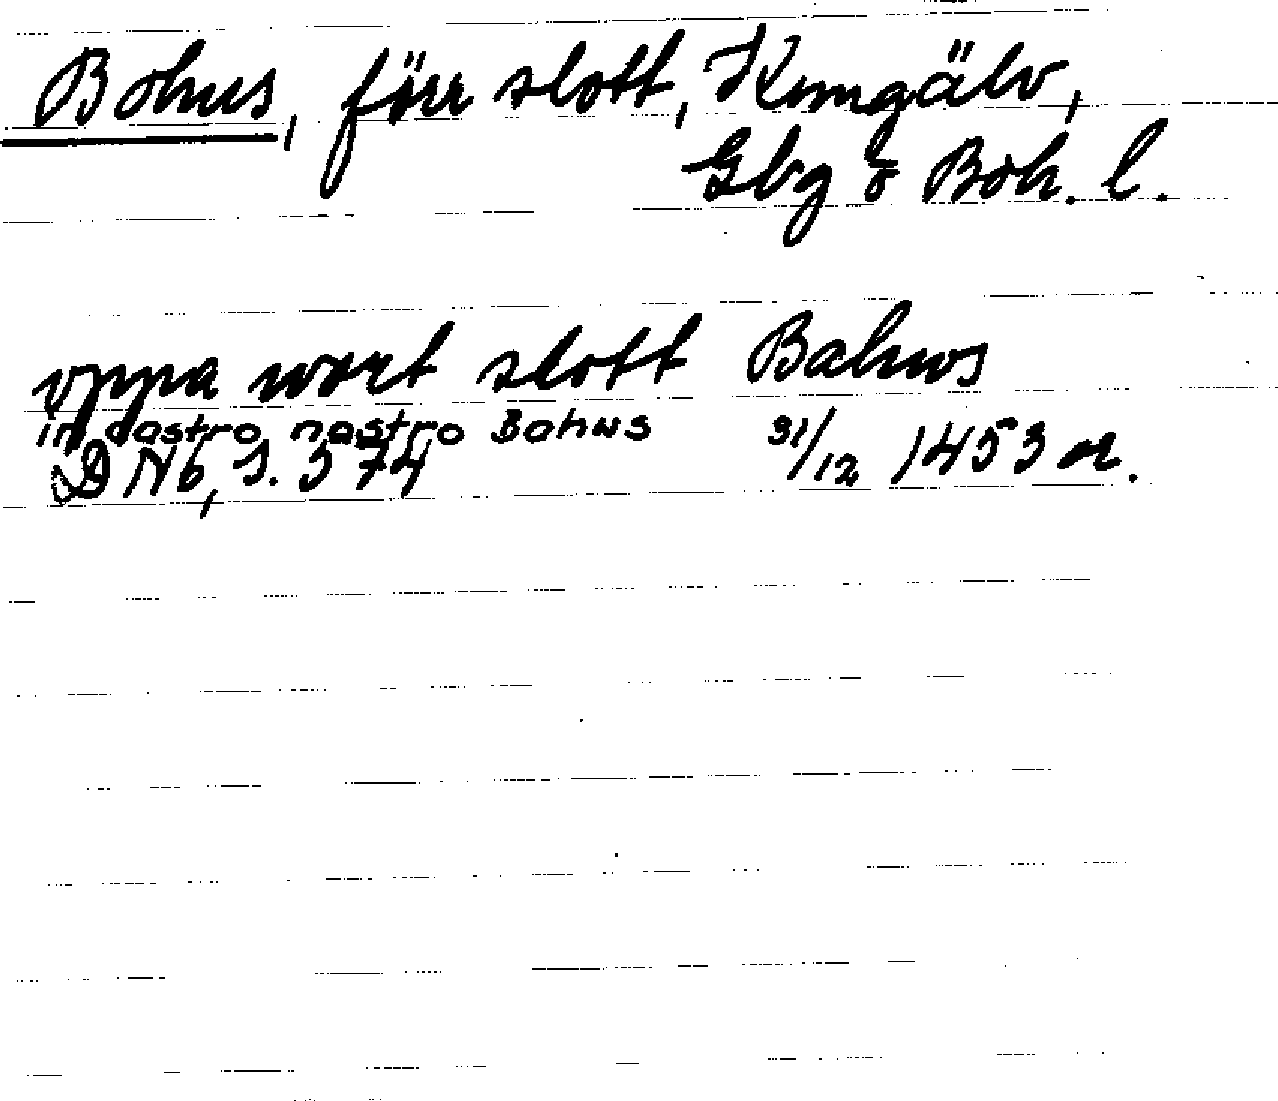 Bohus, förr slott, Kungälv,
Gbg o Boh. l.
vppa wort slott Bahws
in castro nostro Bahws 31/12 1453 or.
DN 6, s. 574